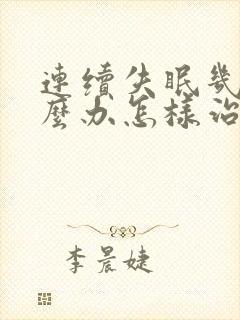 連續失眠幾
麼办怎樣治
李晨婕